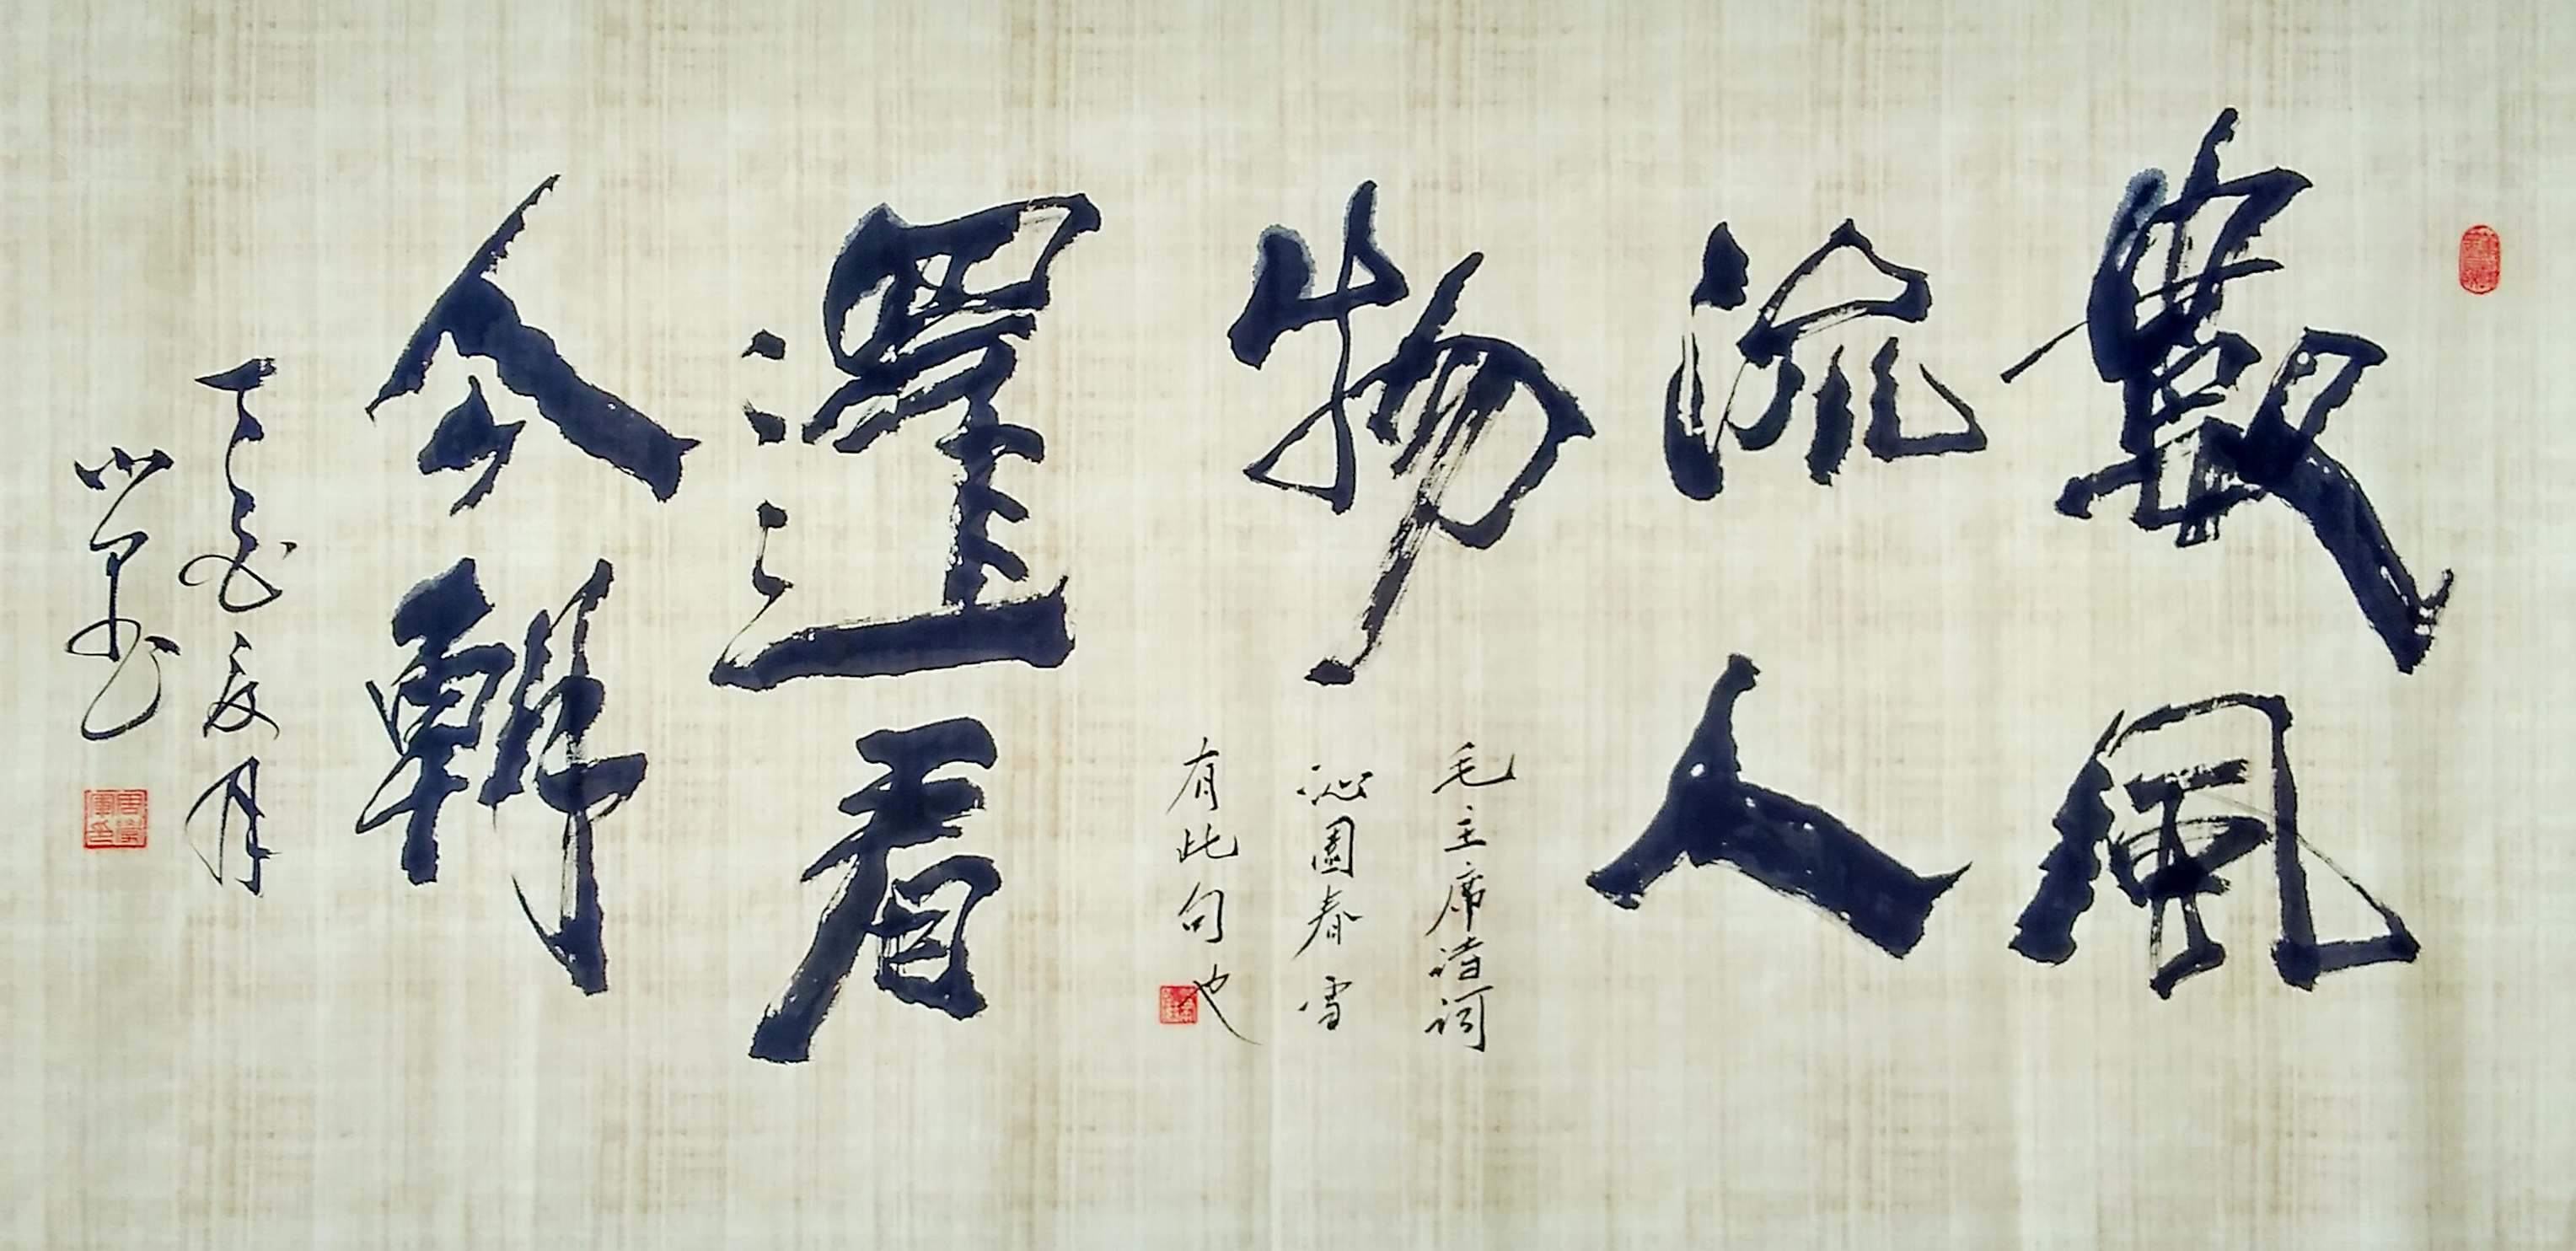 數風
流人
物
毛主席詩詞
沁園春雪
有此句也
還看
今朝
丁酉夏月